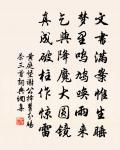 文書滿案惟生睡
夢裏鳴鳩喚雨來
乞與降魔大圓鏡
真成破柱作驚雷
黄庭堅謝公擇舅分賜
茶三首詞典網集